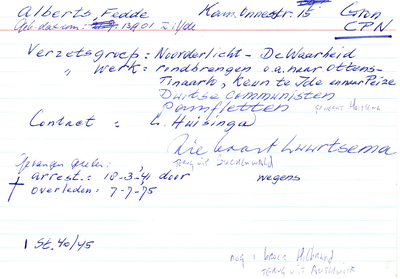 Alberts, Fedde Kam. Onnestr. 15 Gron
Geb. datum: 13.9.01 CPN
Verzetsgroep: Noorderlicht - De Waarheid
" werk: rindbrengen o.a. naar Ottens-
Tinaarlo, Keun te Ide en naar Peize
Duitse Communisten
Pamfletten
Contact = C. Huisinga
Die kaart Luurtsema
TERUG UIT BUCHENWALD
arrest.: 10-3-'41 door wegens
overleden: 7-7-'75
1 St. 40/45
nog 1 broer Hilbrand
TERUG UIT AUSCHWITZ